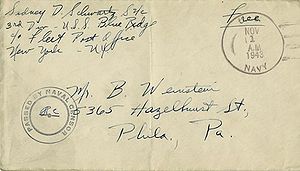 Sidney D. Schwartz S/c
3rd Div - U.S.S Blue Ridge
c/o Fleet Post Office
New York - N.Y.
Free
NOV
A.M
1943
NAVY
Mr. B. Weinstein
5365 Hazelhurst St,
Phila, Pa.
PASSED BY NAVAL CENSOR